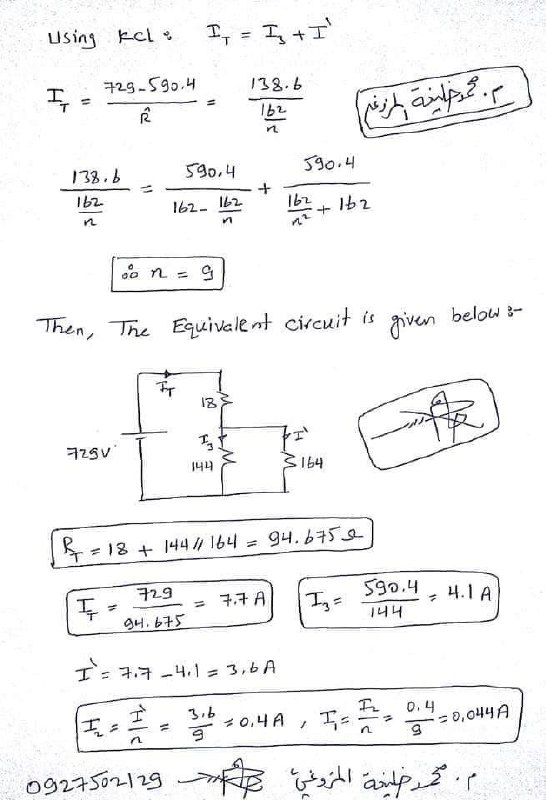 Using KCL: I_T = I_3 + I`
I_T = (729-590.4)/R̂ = 138.6/(162/n)
م. محمد خليفة المزوغي
138.6/(162/n) = 590.4/(162- 162/n) + 590.4/(162/n² + 162)
∴ n = 9
Then, The Equivalent circuit is given below:-
I_T
18
729V
I_3
I`
144
164
R_T = 18 + 144//164 = 94.675Ω
I_T = 729/94.675 = 7.7 A
I_3 = 590.4/144 = 4.1 A
I` = 7.7 - 4.1 = 3.6 A
I_2 = I`/n = 3.6/9 = 0.4 A , I_1 = I_2/n = 0.4/9 = 0.044 A
0927502129
م. محمد خليفة المزوغي